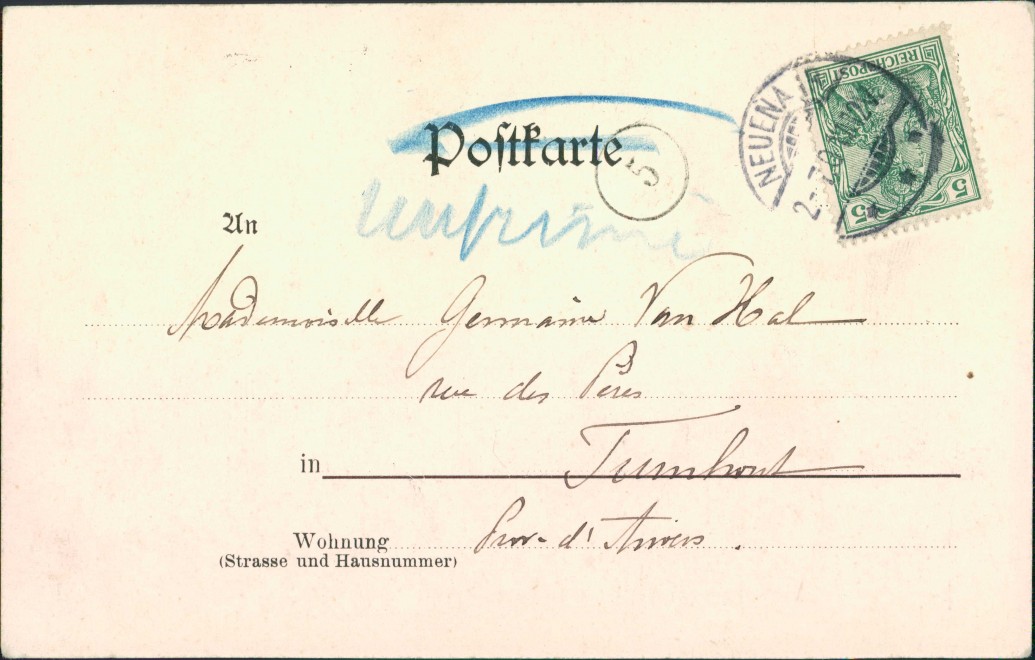 Postkarte
imprimé
5
NEUENA
REICHSPOST
5 5
An
Mademoiselle Germaine Van Hal
rue des Pères
in Turnhout
Wohnung Prov. d'Anvers.
(Strasse und Hausnummer)